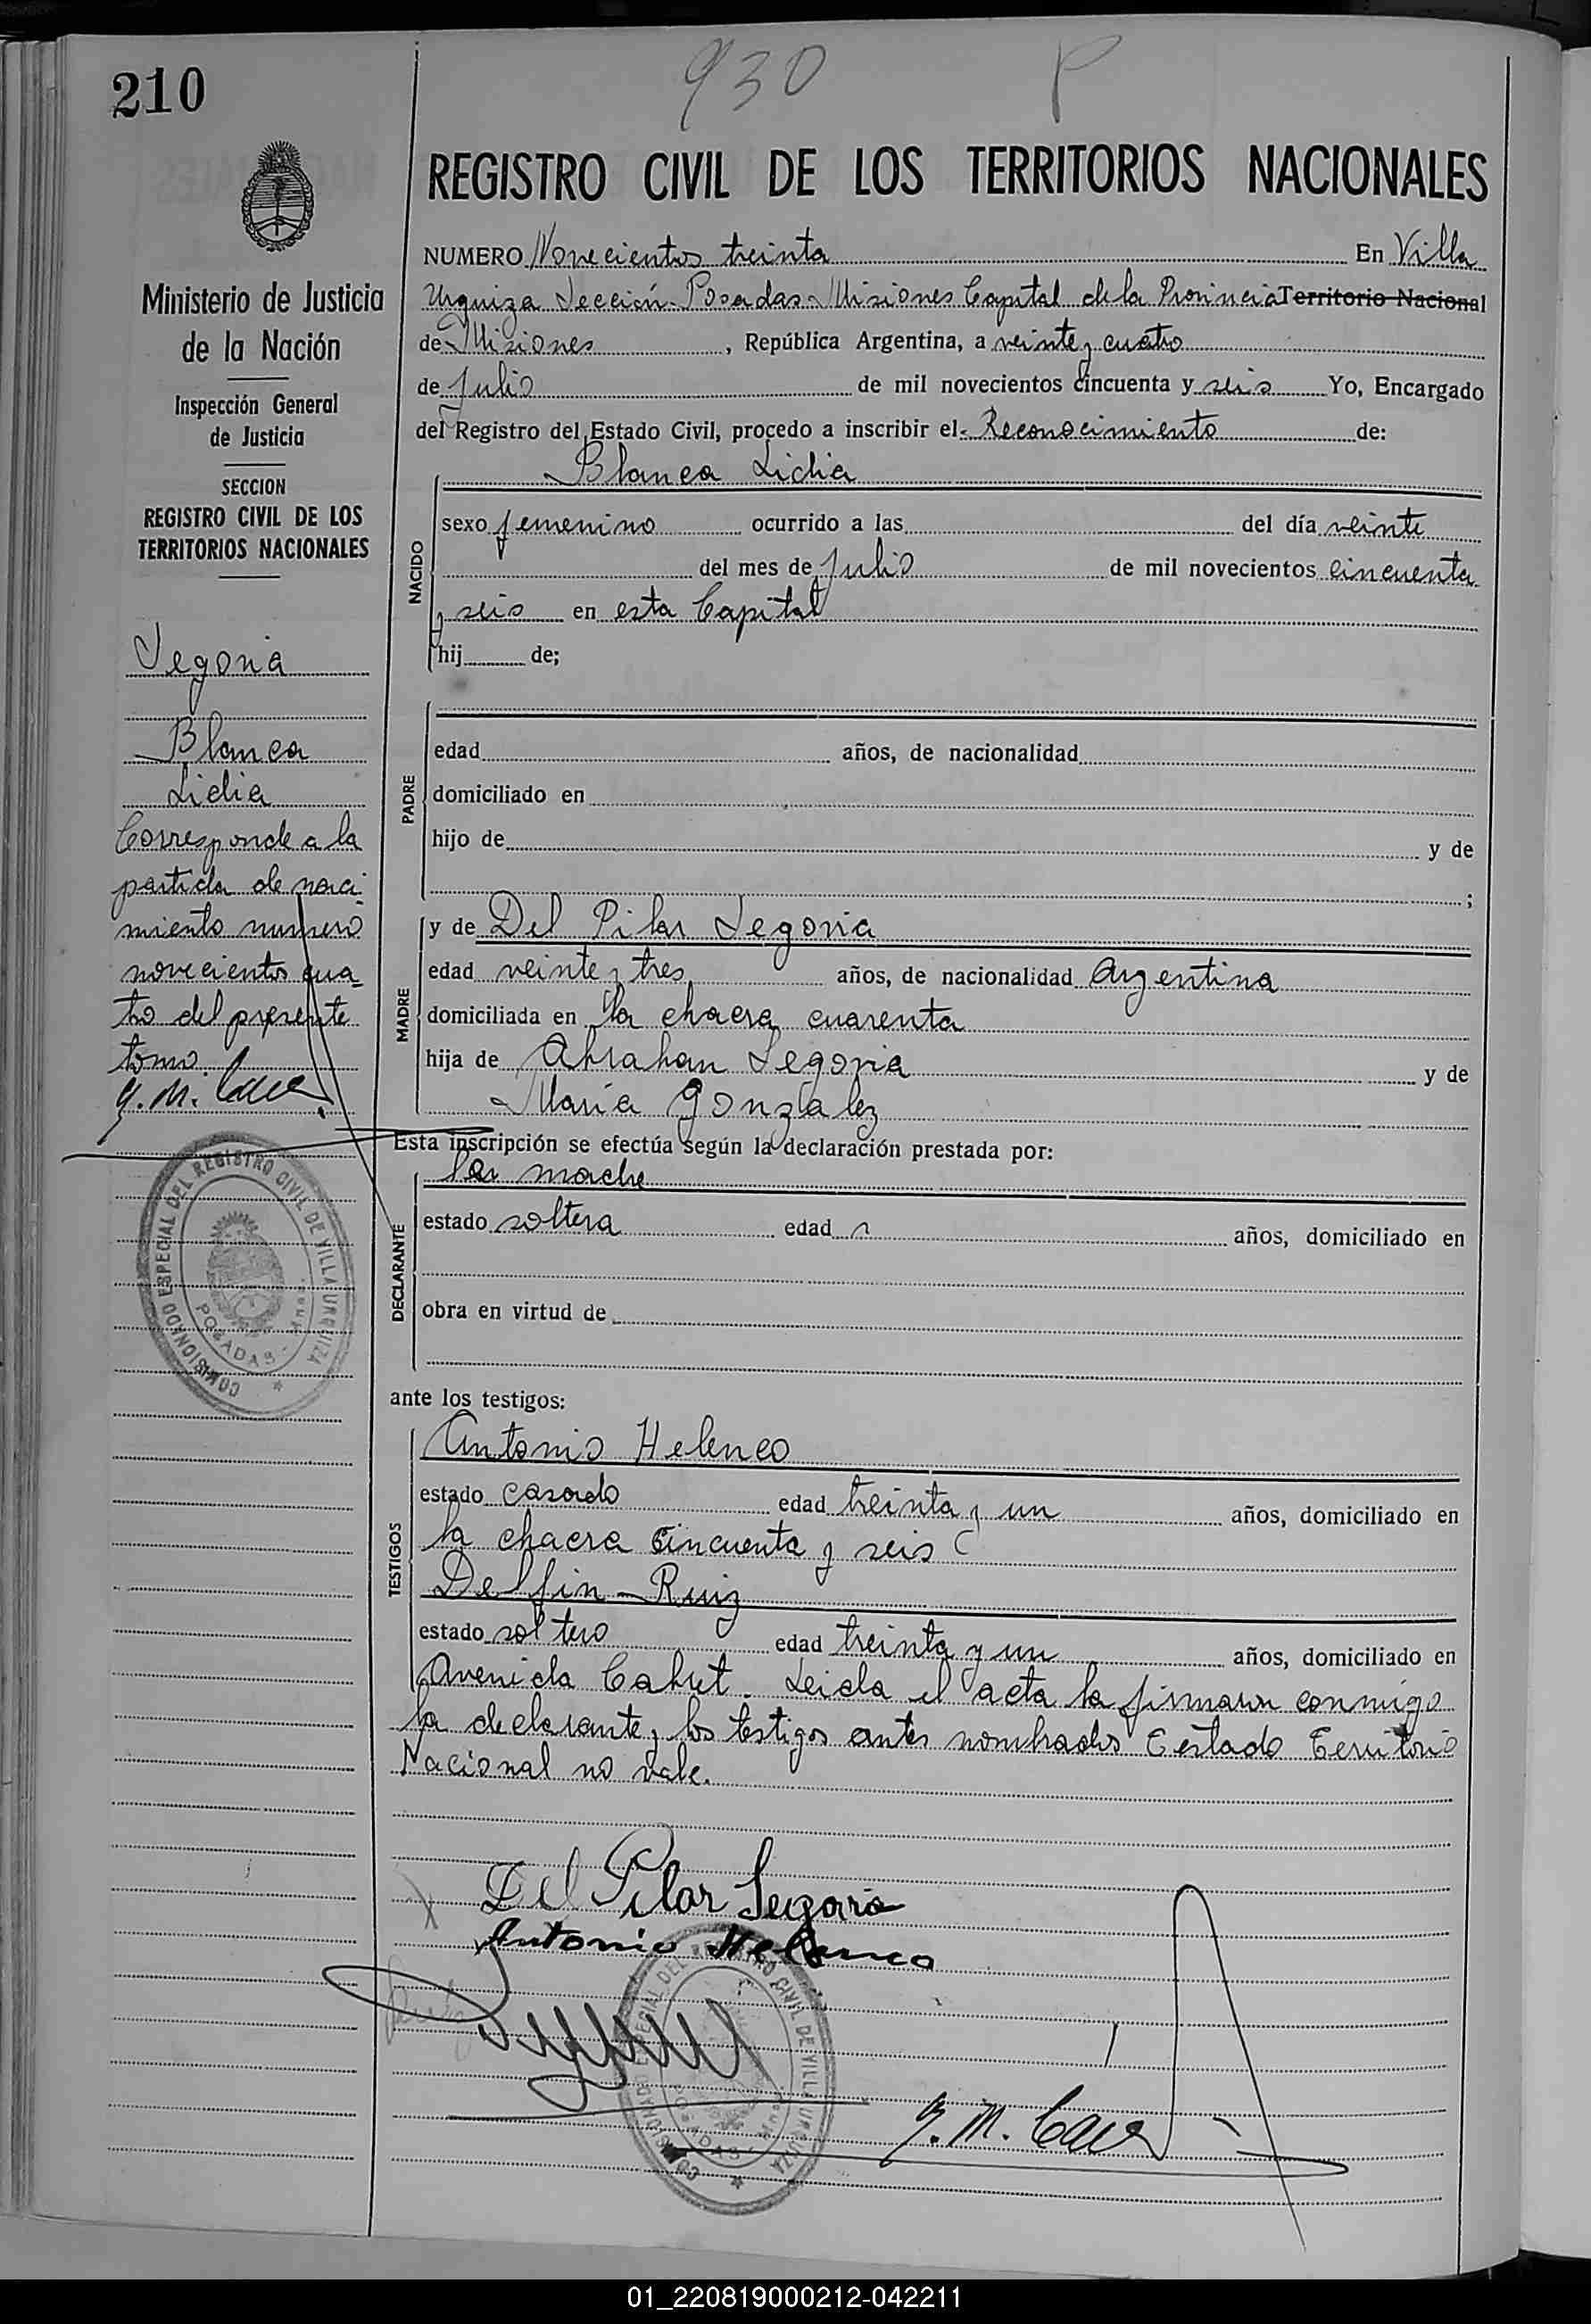 210
930 P
REGISTRO CIVIL DE LOS TERRITORIOS NACIONALES
Ministerio de Justicia
de la Nación
Inspección General
de Justicia
SECCION
REGISTRO CIVIL DE LOS
TERRITORIOS NACIONALES
Segovia
Blanca
Lidia
Corresponde a la
partida de naci-
miento numero
novecientos cua-
tro del presente
tomo.
COMISIONADO ESPECIAL DEL REGISTRO CIVIL DE VILLA URQUIZA
POSADAS - Mnes.
NUMERO Novecientos treinta En Villa
Urquiza Sección Posadas Misiones Capital de la Provincia Territorio Nacional
de Misiones, República Argentina, a veinte y cuatro
de Julio de mil novecientos cincuenta y seis Yo, Encargado
del Registro del Estado Civil, procedo a inscribir el Reconocimiento de:
Blanca Lidia
NACIDO
sexo femenino ocurrido a las del día veinte
del mes de Julio de mil novecientos cincuenta
y seis en esta Capital
hij de;
PADRE
edad años, de nacionalidad
domiciliado en
hijo de y de
;
MADRE
y de Del Pilar Segovia
edad veinte y tres años, de nacionalidad Argentina
domiciliada en la chacra cuarenta
hija de Abrahan Segovia y de
Maria Gonzalez
Esta inscripción se efectúa según la declaración prestada por:
la madre
DECLARANTE
estado soltera edad años, domiciliado en
obra en virtud de
ante los testigos:
TESTIGOS
Antonio Helenco
estado casado edad treinta y un años, domiciliado en
la chacra cincuenta y seis
Delfin Ruiz
estado soltero edad treinta y un años, domiciliado en
Avenida Cabret. Leida el acta la firmaron conmigo
la declarante y los testigos antes nombrados Testado Territorio
Nacional no vale.
Del Pilar Segovia
Antonio Helenco
COMISIONADO ESPECIAL DEL REGISTRO CIVIL DE VILLA URQUIZA
POSADAS - Mnes.
01_220819000212-042211